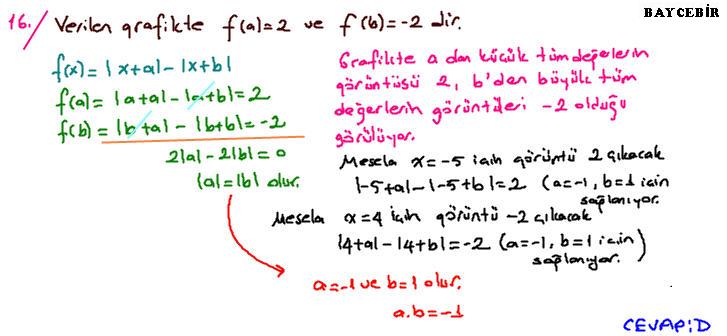 BAYCEBİR
16. / Verilen grafikte f(a)=2 ve f(b)=-2 dir.
f(x)=|x+a|-|x+b|
f(a)=|a+a|-|a+b|=2
f(b)=|b+a|-|b+b|=-2
2|a|-2|b|=0
|a|=|b| olur.
Grafikte a dan küçük tüm değerlerin
görüntüsü 2, b'den büyük tüm
değerlerin görüntüleri -2 olduğu
görülüyor.
Mesela x=-5 için görüntü 2 çıkacak
|-5+a|-|-5+b|=2 (a=-1, b=1 için
sağlanıyor.
Mesela x=4 için görüntü -2 çıkacak
|4+a|-|4+b|=-2 (a=-1, b=1 için)
sağlanıyor.
a=-1 ve b=1 olur.
a.b=-1
CEVAP:D